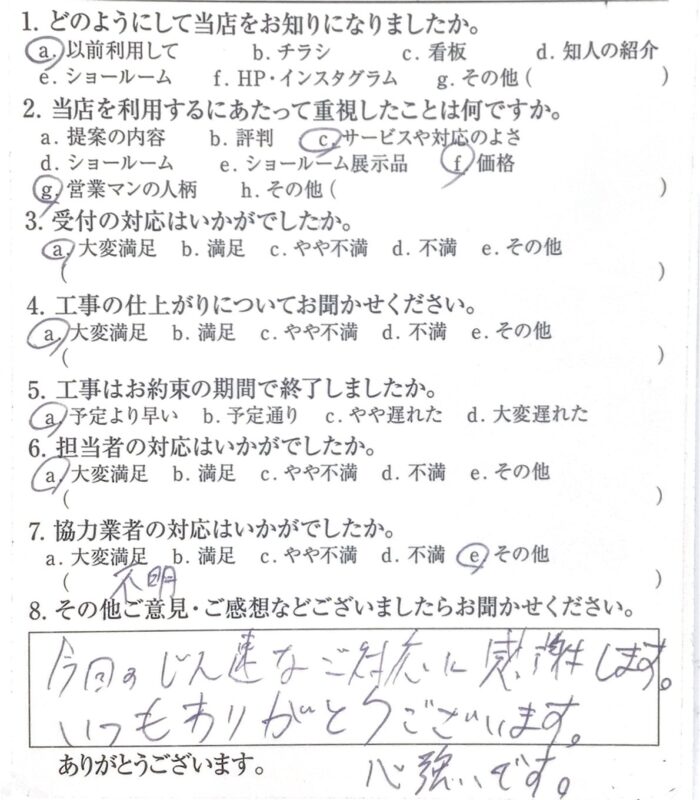 1. どのようにして当店をお知りになりましたか。
a. 以前利用して b. チラシ c. 看板 d. 知人の紹介
e. ショールーム f. HP・インスタグラム g. その他 ( )
2. 当店を利用するにあたって重視したことは何ですか。
a. 提案の内容 b. 評判 c. サービスや対応のよさ
d. ショールーム e. ショールーム展示品 f. 価格
g. 営業マンの人柄 h. その他 ( )
3. 受付の対応はいかがでしたか。
a. 大変満足 b. 満足 c. やや不満 d. 不満 e. その他
( )
4. 工事の仕上がりについてお聞かせください。
a. 大変満足 b. 満足 c. やや不満 d. 不満 e. その他
( )
5. 工事はお約束の期間で終了しましたか。
a. 予定より早い b. 予定通り c. やや遅れた d. 大変遅れた
6. 担当者の対応はいかがでしたか。
a. 大変満足 b. 満足 c. やや不満 d. 不満 e. その他
( )
7. 協力業者の対応はいかがでしたか。
a. 大変満足 b. 満足 c. やや不満 d. 不満 e. その他
( 不明 )
8. その他ご意見・ご感想などございましたらお聞かせください。
今回のじん速なご対応に感謝します。
いつもありがとうございます。
ありがとうございます。 心強いです。